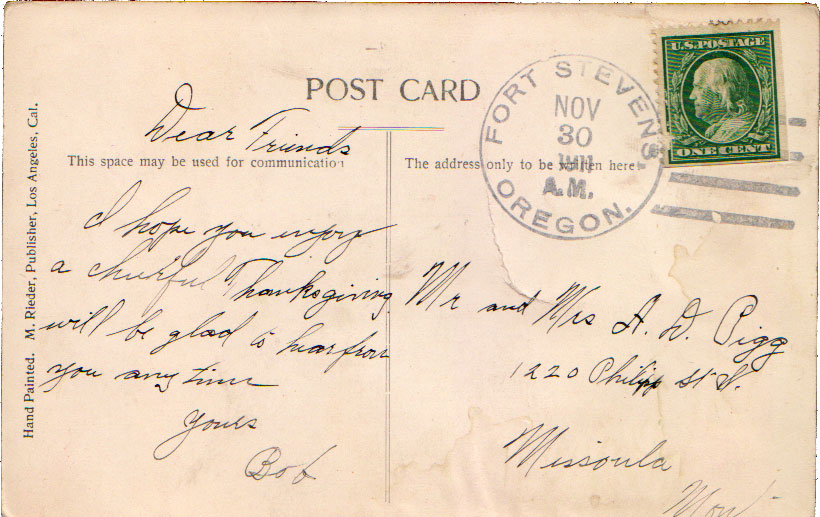 POST CARD
Dear Friends
This space may be used for communication
I hope you enjoy
a cheirful Thanksgiving
will be glad to hear from
you any time
Yours
Bob
The address only to be written here
FORT STEVENS
NOV
30
A.M.
OREGON.
U.S. POSTAGE
ONE CENT
Mr and Mrs A. D. Pigg
1220 Philipp St N.
Missoula
Mont
Hand Painted. M. Rieder, Publisher, Los Angeles, Cal.